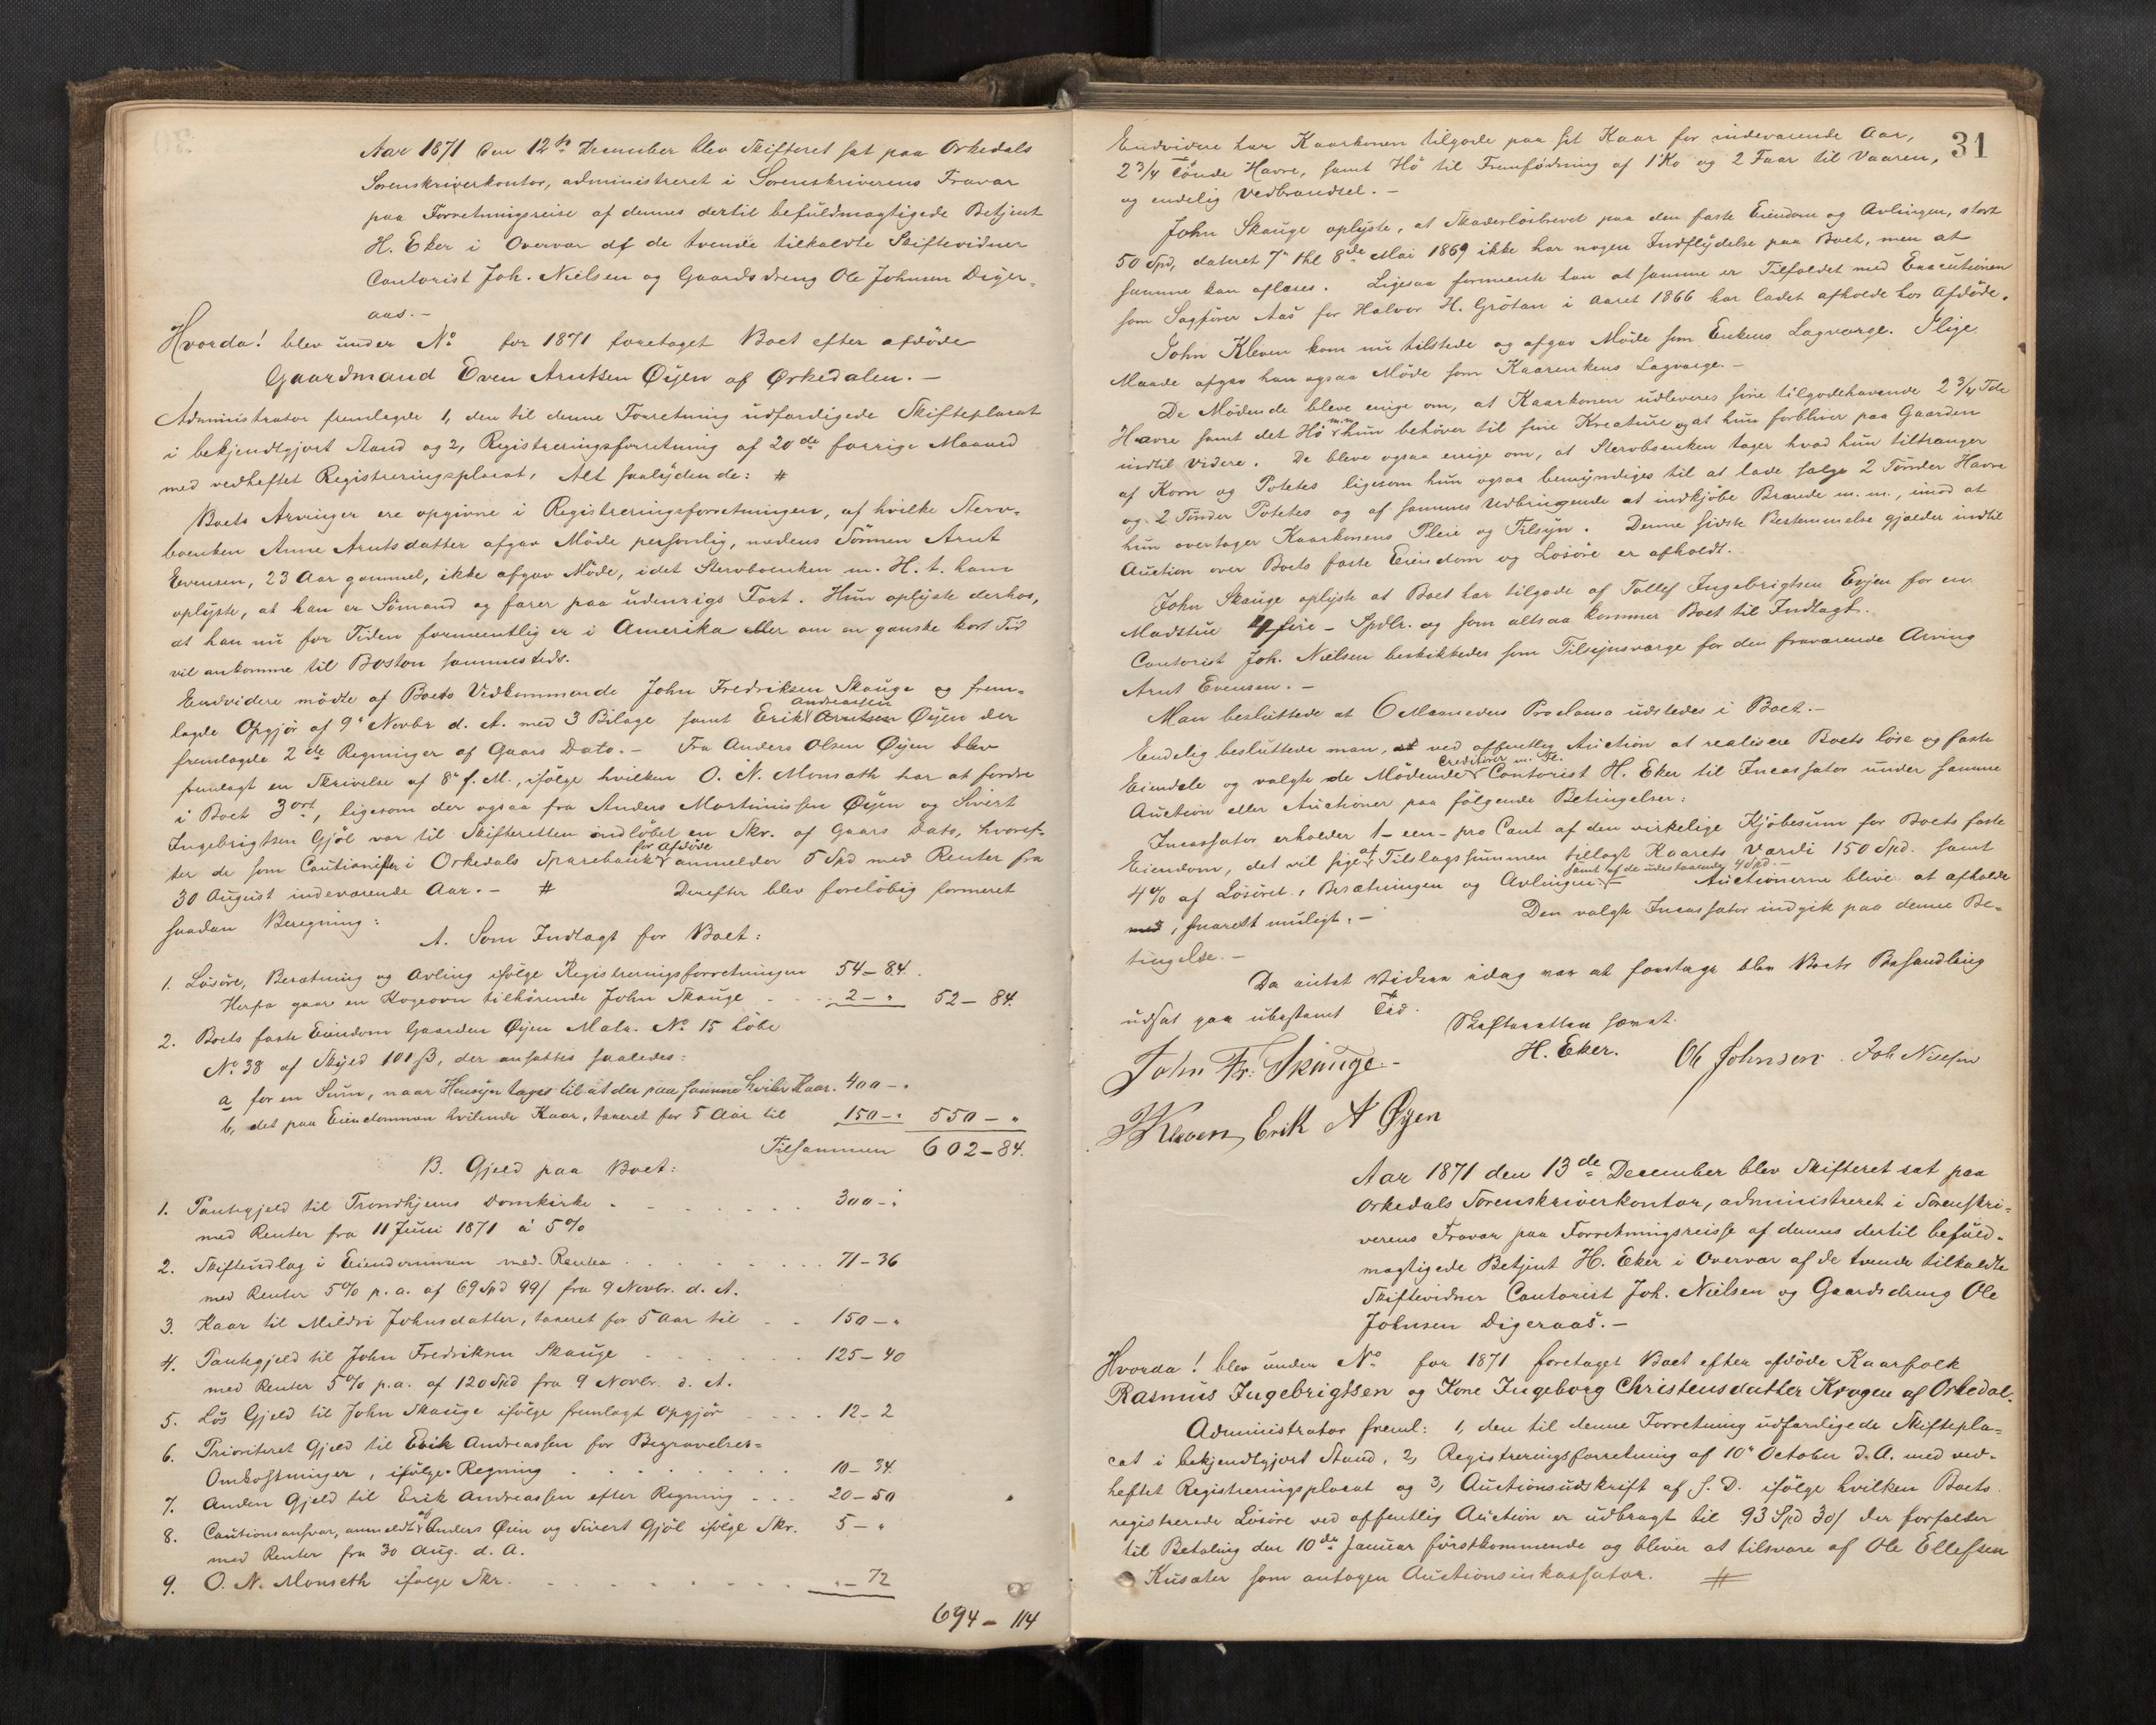 Aar 1871 den 12te December blev Skifteret sat paa Orkedals
Sorenskriverkontor, administreret i Sorenskriverens Fravær
paa Forretningsreise af dennes dertil befuldmægtigede Betjent
H. Eker i Overvær af de tvende tilkaldte Skiftevidner
Contorist Joh. Nielsen og Gaardsdreng Ole Johnsen Diger-
aas.-
Hvorda! blev under No for 1871 foretaget Boet efter afdöde
Gaardmand Even Arntsen Öyen af Örkedalen.-
Administrator fremlagde 1, den til denne Forretning udfærdigede Skifteplacat
i bekjendtgjort Stand og 2, Registreringsforretning af 20de forrige Maaned
med vedheftet Registreringsplacat, Alt saalydende: #
Boets Arvinger ere opgivne i Registreringsforretningen, af hvilke Sterv-
boenken Anne Arntsdatter afgav Möde personlig, medens Sönnen Arnt
Evensen, 23 Aar gammel, ikke afgav Möde, idet Stervboenken m. H. t. ham
oplyste, at han er Sömand og farer paa udenrigs Fart. Hun oplyste derhos,
at han nu for Tiden formentlig er i Amerika eller om en ganske kort Tid
vil ankomme til Boston sammesteds.
Endvidere mödte af Boets Vedkommende John Fredriksen Skauge og frem-
lagde Opgjör af 9de Novbr d. A. med 3 Bilage samt Erik Andreassen Arntsen Öyen der
fremlagde 2de Regninger af Gaars Dato.- Fra Anders Olsen Öyen blev
fremlagt en Skrivelse af 8de f. M., ifölge hvilken O. N. Monsath har at fordre
i Boet 3 ort, ligesom der ogsaa fra Anders Martinussen Öyen og Sivert
Ingebrigtsen Gjöl var til Skifteretten indlöbet en Skr. af Gaars Dato, hvoref-
ter de som Cautionister i Orkedals Sparebank for Afdöde anmelder 5 Spd med Renter fra
30 August indeværende Aar.- # Derefter blev forelöbig formeret
saadan Beregning:
A. Som Indtægt for Boet:
1. Lösöre, Besætning og Avling ifölge Registreringsforretningen 54-84.
Herfra gaar en Kogeovn tilhörende John Skauge 2-" 52-84.
2. Boets faste Eiendom Gaarden Öyen Matr. No 15 Löbe
No. 38 af Skyld 101 ß, der ansattes saaledes:
a for en Sum, naar Hensyn tages til at der paa samme hviler Kaar. 400-"
b, det paa Eiendommen hvilende Kaar, taxeret for 5 Aar til 150-" 550-"
Tilsammen 602-84.
B. Gjeld paa Boet:
1. Pantegjeld til Trondhjems Domkirke 300-"
med Renter fra 11 Juni 1871 á 5%
2. Skifteudlæg i Eiendommen med Renter 71-36
med Renter 5% p. a. af 69 Spd 99/ fra 9 Novbr. d. A.
3. Kaar til Mildri Johnsdatter, taxeret for 5 Aar til 150-"
4. Pantegjeld til John Fredriksen Skauge 125-40
med Renter 5% p.a. af 120 Spd fra 9 Novbr. d. A.
5. Lös Gjeld til John Skauge ifölge fremlagt Opgjör 12-2
6. Prioriteret Gjeld til Erik Andreassen for Begravelses-
Omkostninger, ifölge Regning 10-34.
7. Anden Gjeld til Erik Andreassen efter Regning 20-50
8. Cautionsansvar, anmeldt af Anders Öien og Sivert Gjöl ifölge Skr. 5-"
med Renter fra 30 Aug. d. A.
9. O. N. Monseth ifölge Skr. "-72
694-114
31
Endvidere har Kaarkonen tilgode paa sit Kaar for indeværende Aar,
2 3/4 Tönde Havre, samt Hö til Fremfödning af 1 Ko og 2 Faar til Vaaren,
og endelig Vedbrændsel.-
John Skauge oplyste, at Skadeslösbrevet paa den faste Eiendom og Avlingen, stort
50 Spd, dateret 7de thl 8de Mai 1869 ikke har nogen Indflydelse paa Boet, men at
samme kan aflæses. Ligesaa formente han at samme er Tilfældet med Executionen
som Sagförer Aas for Halvor H. Grötan i Aaret 1866 har ladet afholde hos Afdöde.
John Kleven kom nu tilstede og afgav Möde som Enkens Lagværge. Slige
Maade afgav han ogsaa Möde som Kaarenkens Lagværge.-
De Mödende bleve enige om, at Kaarkonen udleveres sine tilgodehavende 2 3/4 Tde
Havre samt det Hö m.m. hun behöver til sine Kreature og at hun forbliver paa Gaarden
indtil videre. De bleve ogsaa enige om, at Stervboenken tager hvad hun tiltrænger
af Korn og Potetes ligesom hun ogsaa bemyndiges til at lade sælge 2 Tönder Havre
og 2 Tönder Potetes og af sammes Udbringende at indkjöbe Brænde m. m., imod at
hun overtager Kaarkonens Pleie og Tilsyn. Denne sidste Bestemmelse gjælder indtil
Auction over Boets faste Eiendom og Lösöre er afholdt.
John Skauge oplyste at Boet har tilgode af Tollef Ingebrigtsen Evjen for en
Madstue 4 fire - Spdlr. og som altsaa kommer Boet til Indtægt.
Contorist Joh. Nielsen beskikkedes som Tilsynsværge for den fraværende Arving
Arnt Evensen.-
Man besluttede at 6 Maaneders Proclama udstedes i Boet.-
Endelig besluttede man, at ved offentlig Auction at realisere Boets löse og faste
Eiendele og valgte de Mödende Creditorer m. Fl. Contorist H. Eker til Incassator under samme
Auction eller Auctioner paa fölgende Betingelser:
Incassator erholder 1- een- pro Cent af den virkelige Kjöbesum for Boets faste
Eiendom, det vil sige af Tilslagssummen tillagt Kaarets Værdi 150 Spd. samt
4% af Lösöret, Besætningen og Avlingen samt af de udestaaende 4 Spd.- Auctionerne blive at afholde
med, snarest muligt.- Den valgte Incassator indgik paa denne Be-
tingelse.-
Da intet Videre idag var at foretage blev Boets Behandling
udsat paa ubestemt Tid.
Skifteretten hævet.
H. Eker. Ole Johnsen. Joh Nielsen
John Fr. Skauge.-
JKleven, Erik A Öyen
Aar 1871 den 13de December blev Skifteret sat paa
Orkedals Sorenskriverkontor, administreret i Sorenskri-
verens Fravær paa Forretningsreisse af dennes dertil befuld-
mægtigede Betjent H. Eker i Overvær af de tvende tilkaldte
Skiftevidner Contorist Joh. Nielsen og Gaardsdreng Ole
Johnsen Digeraas.-
Hvorda! blev under No for 1871 foretaget Boet efter afdöde Kaarfolk
Rasmus Ingebrigtsen og Kone Ingeborg Christensdatter Krogen af Orkedal.
Administrator freml: 1, den til denne Forretning udfærdigede Skiftepla-
cat i bekjendtgjort Stand, 2, Registreringsforretning af 10de October d.A. med ved-
heftet Registreringsplacat og 3, Auctionsudskrift af s. D. ifölge hvilken Boets
registrerede Lösöre ved offentlig Auction er udbragt til 93 Spd 30/ der forfalder
til Betaling den 10de Januar förstkommende og bliver at tilsvare af Ole Ellefsen
Kusæter som antagen Auctionsinkassator. #